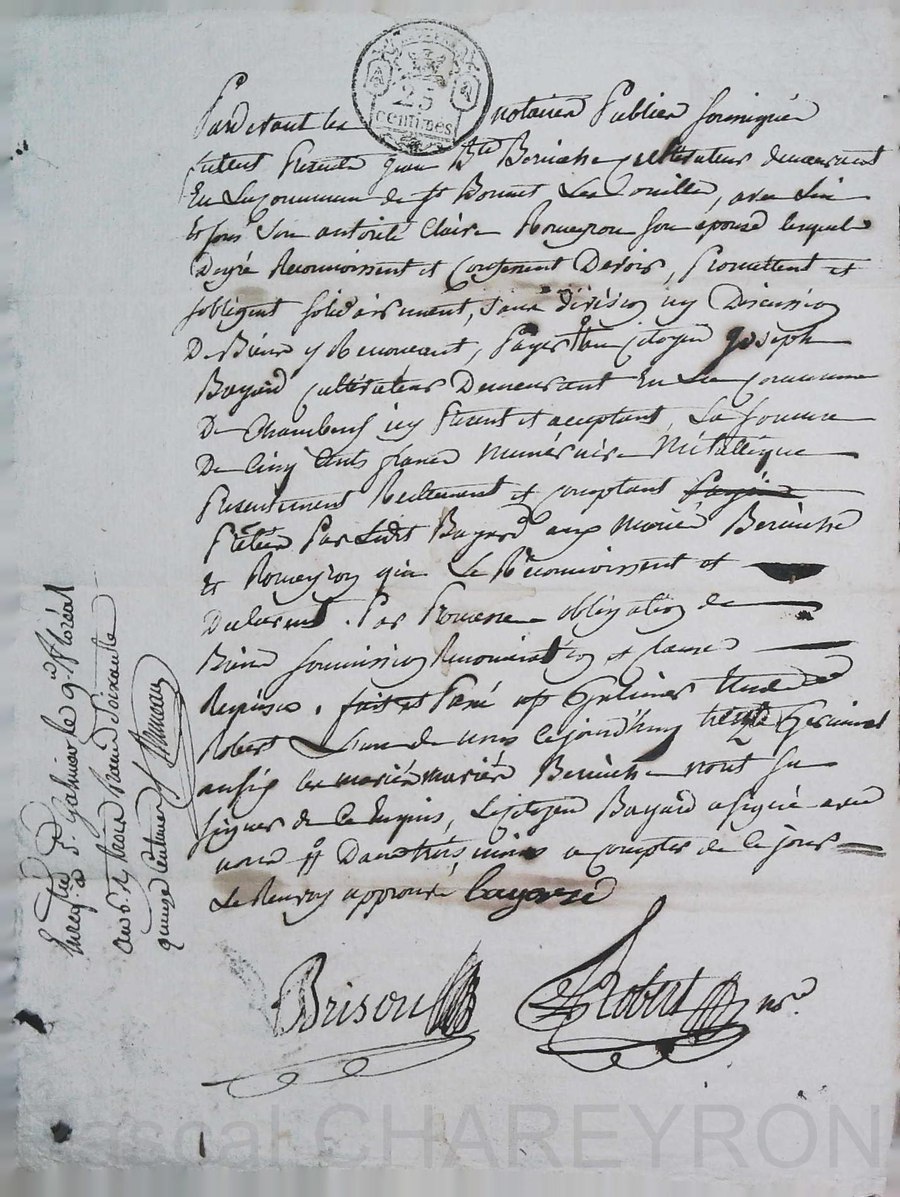 25
centimes
Pardevant les notaires Publics soussignés
furent Present jean Bte Beraiche cultivateur demeurant
En La commune de St Bonnet Les Oulles, avec Lui
Et sous Son autorité Claire Romeyron son épouse lesquels
Degré Reconnoissent et confessent Devoir, Promettent et
sobligent solidairement, sans division ny Discussion
De Biens y Renonceant, Payer au Citoyen Joseph
Bayard cultivateur Demeurant En La commune
De Chambeuf icy Present et acceptant, La somme
De Cinq Cents francs Numéraire Métallique
Presentement Reellement et comptant
Prétés Par Ledit Bayard aux mariés Beraiche
Et Romeyron qui Le Reconnoissent et
Declarent. Par Promesse obligation de
Biens soumission Renonciation et clause
Requises. fait et Passé a St Galmier Etude de
Robert L'un de nous cejourd'huy Germinal
an six les mariés Beraiche n'ont su
signer de ce Requis, Le citoyen Bayard a signé avec
nous // Dans trois mois a compter de ce jour
Le Renvoy approuvé bayard
Brison Robert nre.
Enregistré a St Galmier le 9 floréal
an 6. Reçu Deux francs Soixante
quinze Centimes
Pascal CHAREYRON